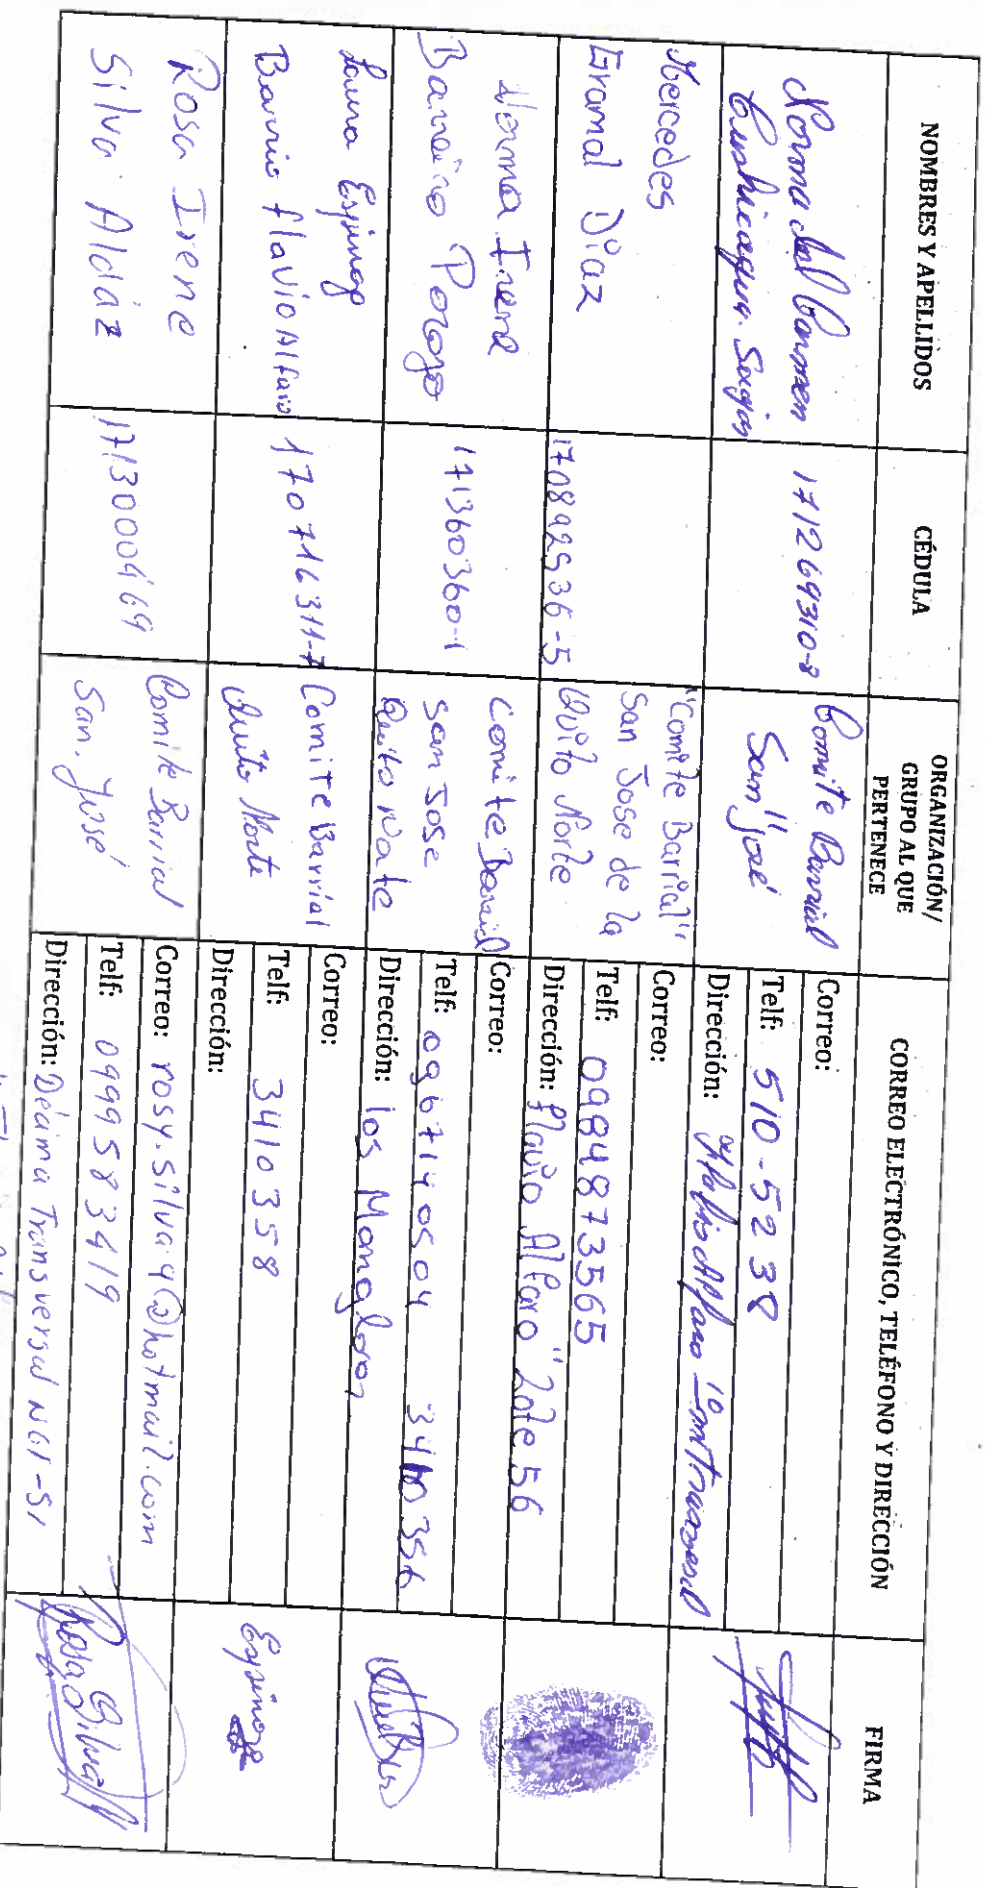 NOMBRES Y APELLIDOS
CÉDULA
ORGANIZACIÓN/
GRUPO AL QUE
PERTENECE
CORREO ELECTRÓNICO, TELÉFONO Y DIRECCIÓN
FIRMA
Norma del Carmen
171269310-8
Comite Barrial
San José
Correo:
Telf: 510-5238
Dirección: Flavio Alfaro
Mercedes
Gramal Diaz
170892536-5
"Comite Barrial"
San Jose de la
Quito Norte
Correo:
Telf: 0984873565
Dirección: Flavio Alfaro "Lote 56
Norma Irene
Barreiro
171360360-1
Comite Barrial
San Jose
Quito Norte
Correo:
Telf: 0967140504
Dirección: los Manglares
Laura Espinoza
Barrio flavio Alfaro
170716311-7
Comite Barrial
Quito Norte
Correo:
Telf: 3410358
Dirección:
Espinoza
Rosa Irene
Silva Aldáz
1713000469
Comite Barrial
San José
Correo: rosy.silva.4@hotmail.com
Telf: 0999583419
Dirección: Décima Transversal N61-51
Rosa Silva